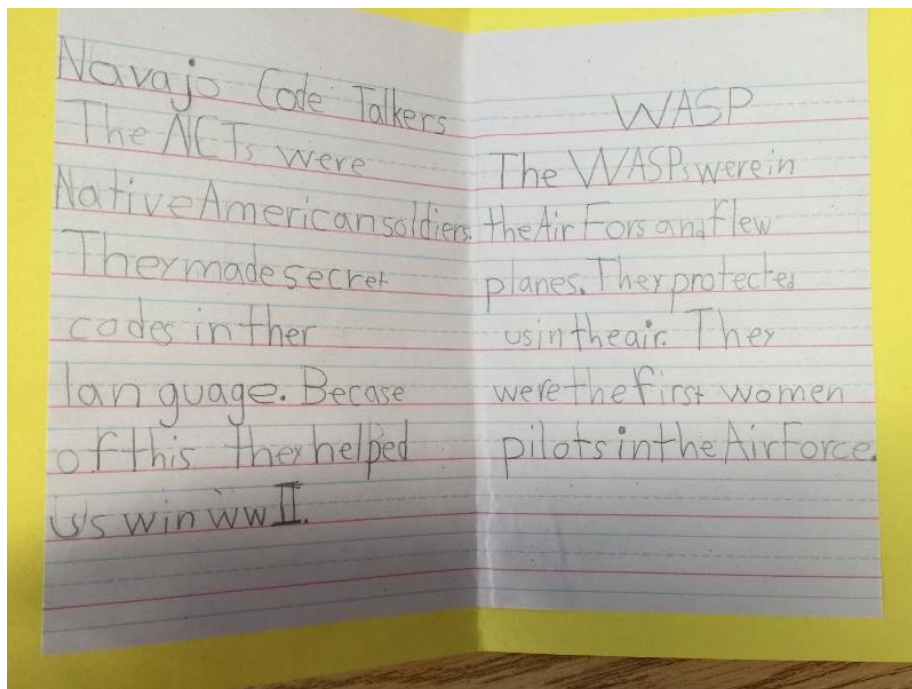 Navajo Code Talkers
The NCTs were
Native American soldiers.
They made secret
codes in ther
language. Becase
of this they helped
us win WWII.
WASP
The WASPs were in
the Air Fors and flew
planes. They protected
us in the air. They
were the first women
pilots in the Air Force.